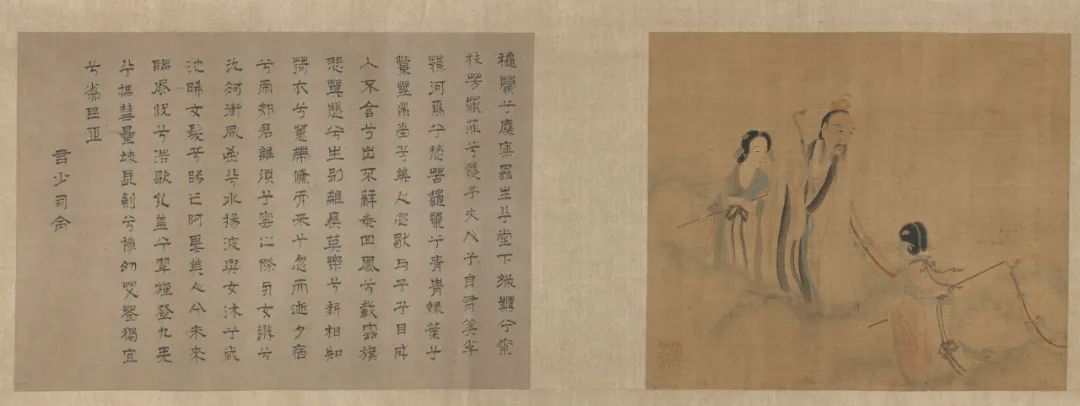 穐蘭兮麋蕪羅生兮堂下綠葉兮素
枝芳菲菲兮襲予夫人兮自有美子
蓀何為兮愁苦龝蘭兮青青綠葉兮
紫莖滿堂兮美人忽獨與予兮目成
入不言兮出不辭乘回風兮載雲旗
悲莫悲兮生別離樂莫樂兮新相知
荷衣兮蕙帶儵而來兮忽而逝夕宿
兮帝郊君誰須兮雲之際與女遊兮
九河衝風至兮水揚波與女沐兮咸
池晞女髮兮陽之阿望美人兮未來
臨風怳兮浩歌孔蓋兮翠旌登九天
兮撫彗星竦長劍兮擁幼艾蓀獨宜
兮為民正
右少司命